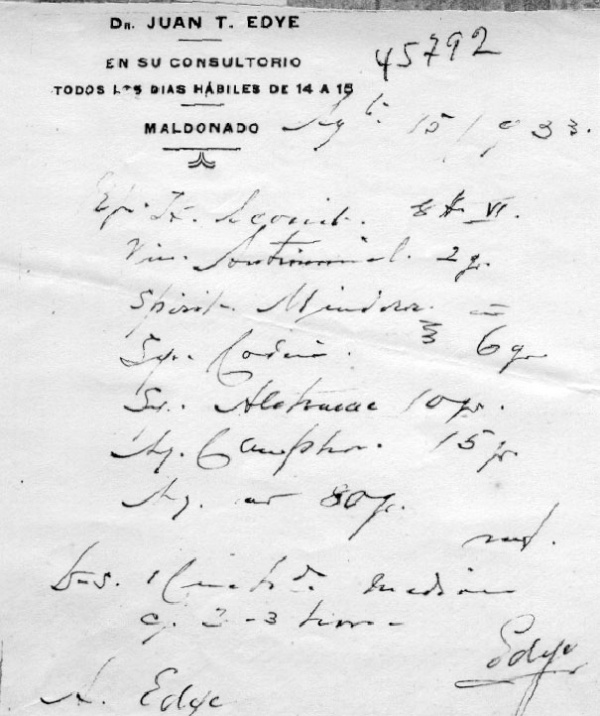 Dr. JUAN T. EDYE
45792
EN SU CONSULTORIO
TODOS LOS DIAS HÁBILES DE 14 A 15
MALDONADO
Agto. 15/933.
T. Aconit. VI.
Vin. Antimonial. 2 gr.
Spirit. Minderer. aa
Sy. Codein. 6 gr
Sy. Altheae 10 gr.
Aq. Camphor. 15 gr.
Aq. 80 gr.
D-S. 1 media
c. 2-3 horas
Edye
A. Edye